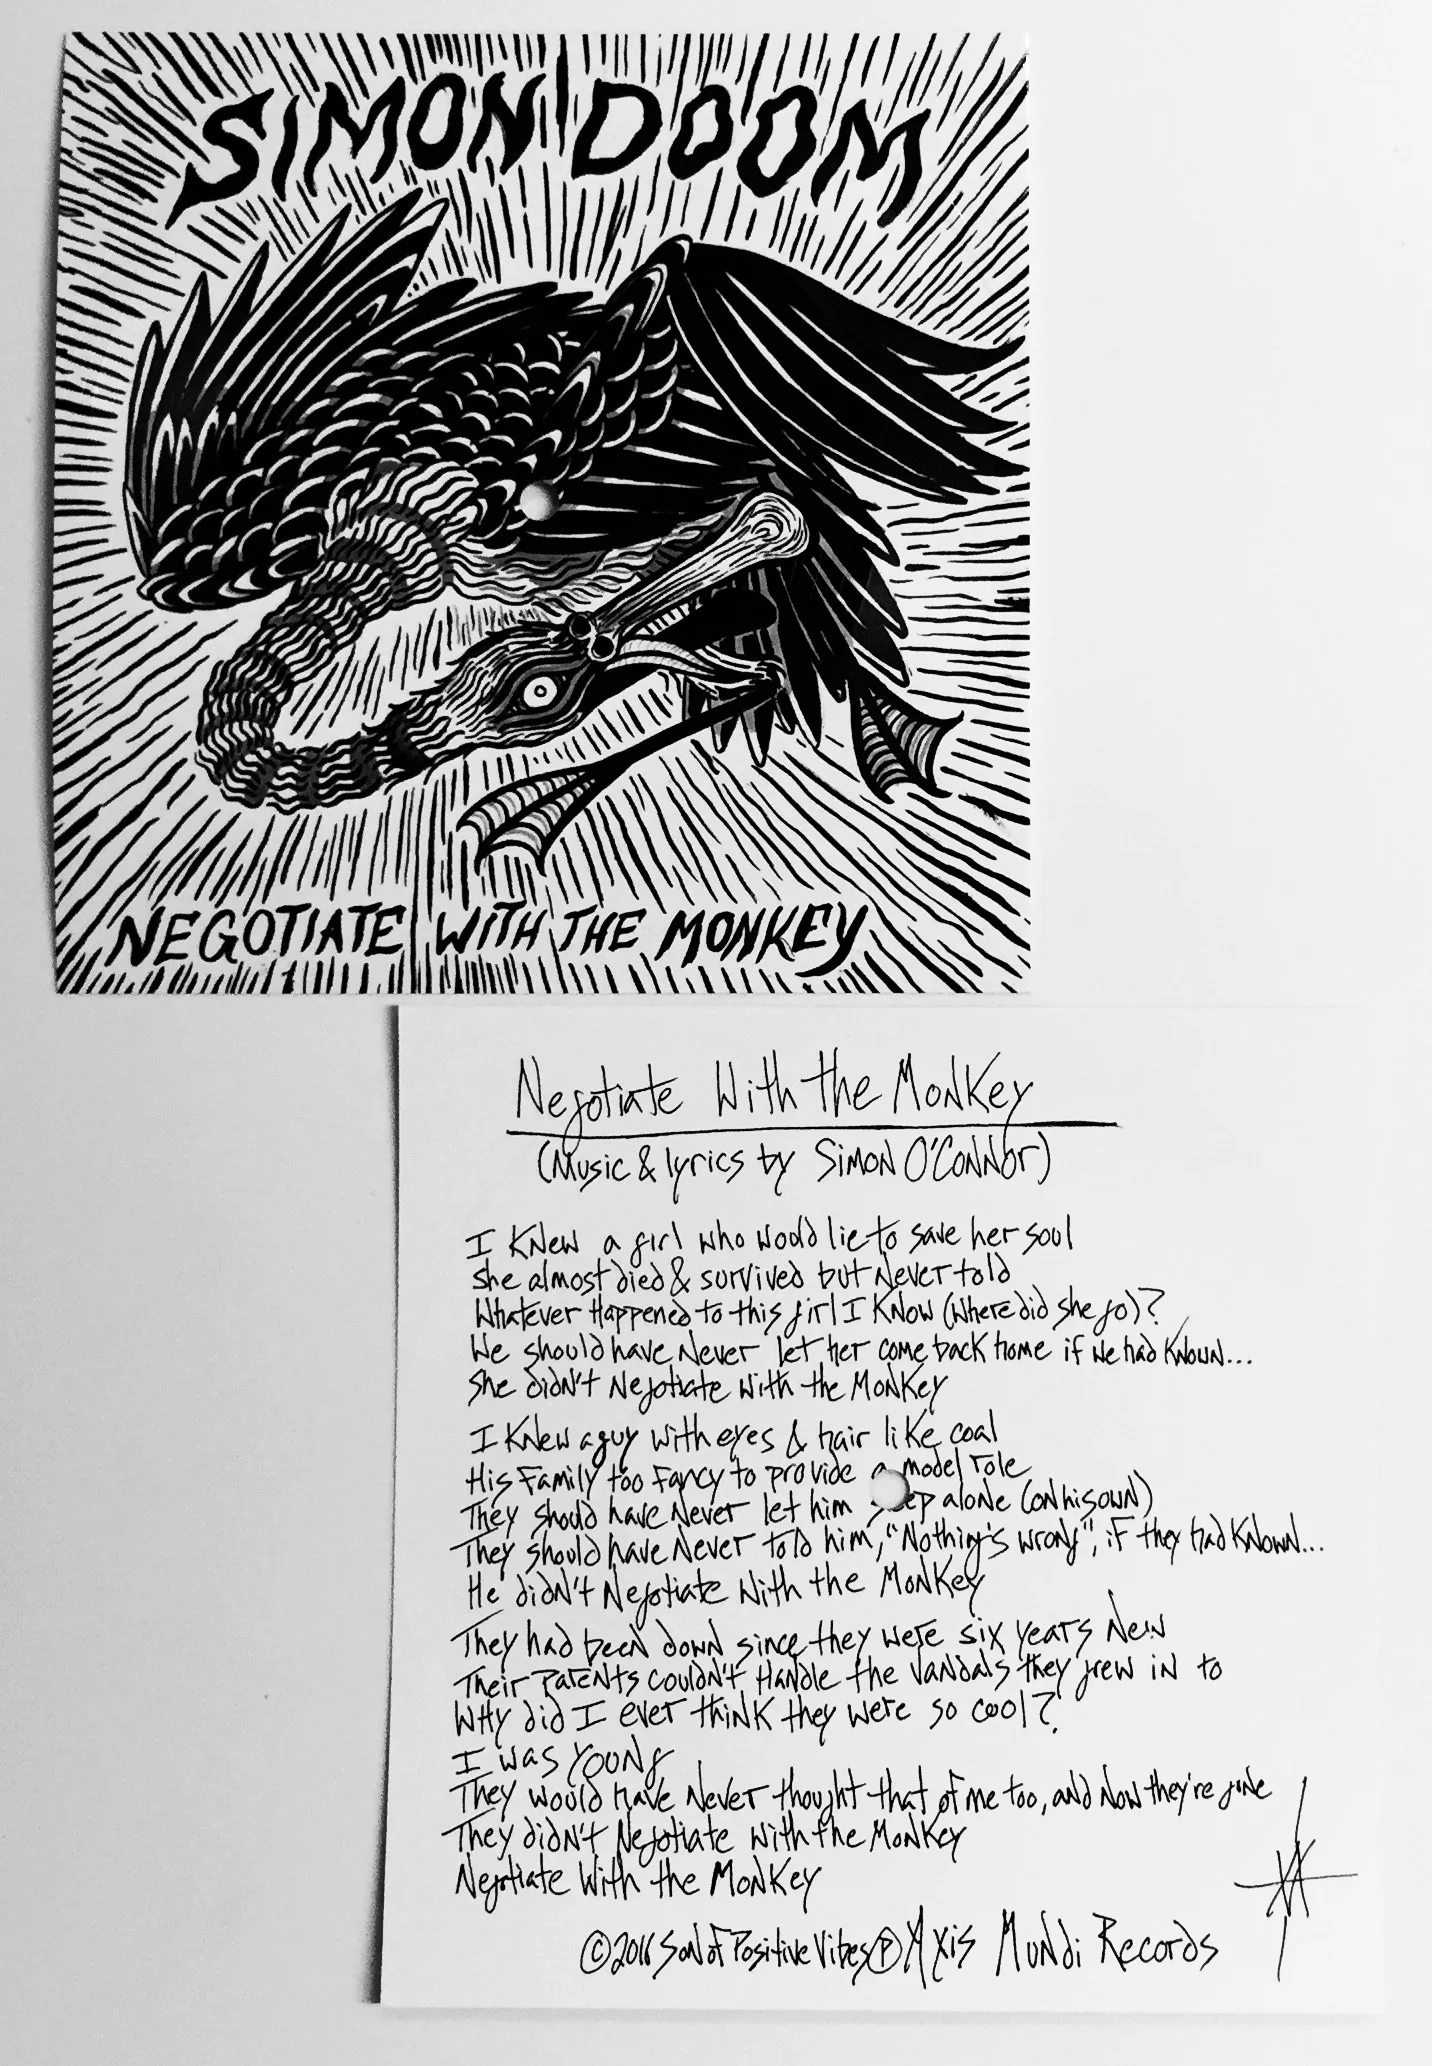 SIMON DOOM
NEGOTIATE WITH THE MONKEY
Negotiate With the Monkey
(Music & lyrics by Simon O'Connor)
I knew a girl who would lie to save her soul
She almost died & survived but never told
Whatever happened to this girl I know (where did she go)?
We should have never let her come back home if we had known...
She didn't negotiate with the monkey
I knew a guy with eyes & hair like coal
His family too fancy to provide a model role
They should have never let him alone (on his own)
They should have never told him, "Nothing's wrong", if they had known...
He didn't negotiate with the monkey
They had been down since they were six years new
Their parents couldn't handle the vandals they grew in to
Why did I ever think they were so cool?
I was young
They would have never thought that of me too, and now they're gone
They didn't negotiate with the monkey
Negotiate with the monkey
© 2016 Son of Positive Vibes ℗ Axis Mundi Records